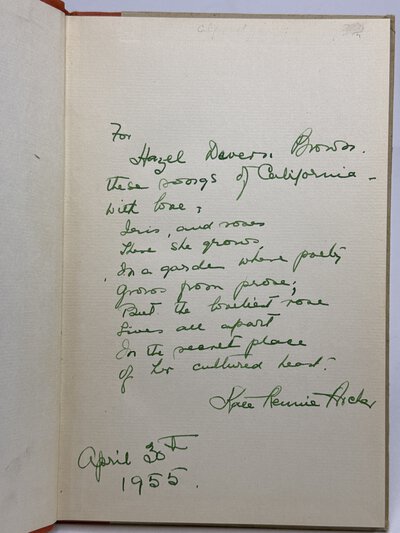 For
Hazel Devers Brown.
these songs of California -
with love;
Iris, and roses
These she grows,
In a garden where poetry
Grows from prose;
But the loveliest rose
Lives all apart
In the secret place
of her cultured heart.
Kate Rennie Archer
April 30th
1955.